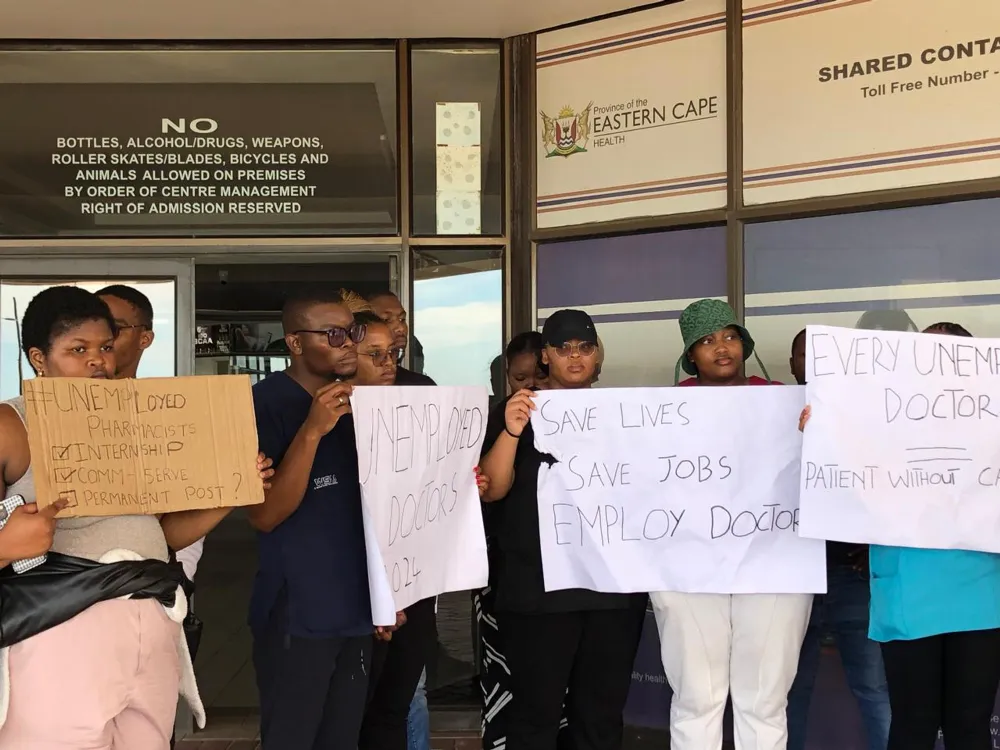 NO
BOTTLES, ALCOHOL/DRUGS, WEAPONS,
ROLLER SKATES/BLADES, BICYCLES AND
ANIMALS ALLOWED ON PREMISES
BY ORDER OF CENTRE MANAGEMENT
RIGHT OF ADMISSION RESERVED
Province of the
EASTERN CAPE
HEALTH
SHARED CONTA
Toll Free Number -
#UNEMPLOYED
PHARMACISTS
INTERNSHIP
COMM-SERVE
PERMANENT POST?
UNEMPLOYED
DOCTORS
2024
SAVE LIVES
SAVE JOBS
EMPLOY DOCTOR
EVERY UNEMP
DOCTOR
=
PATIENT WITHOUT CA